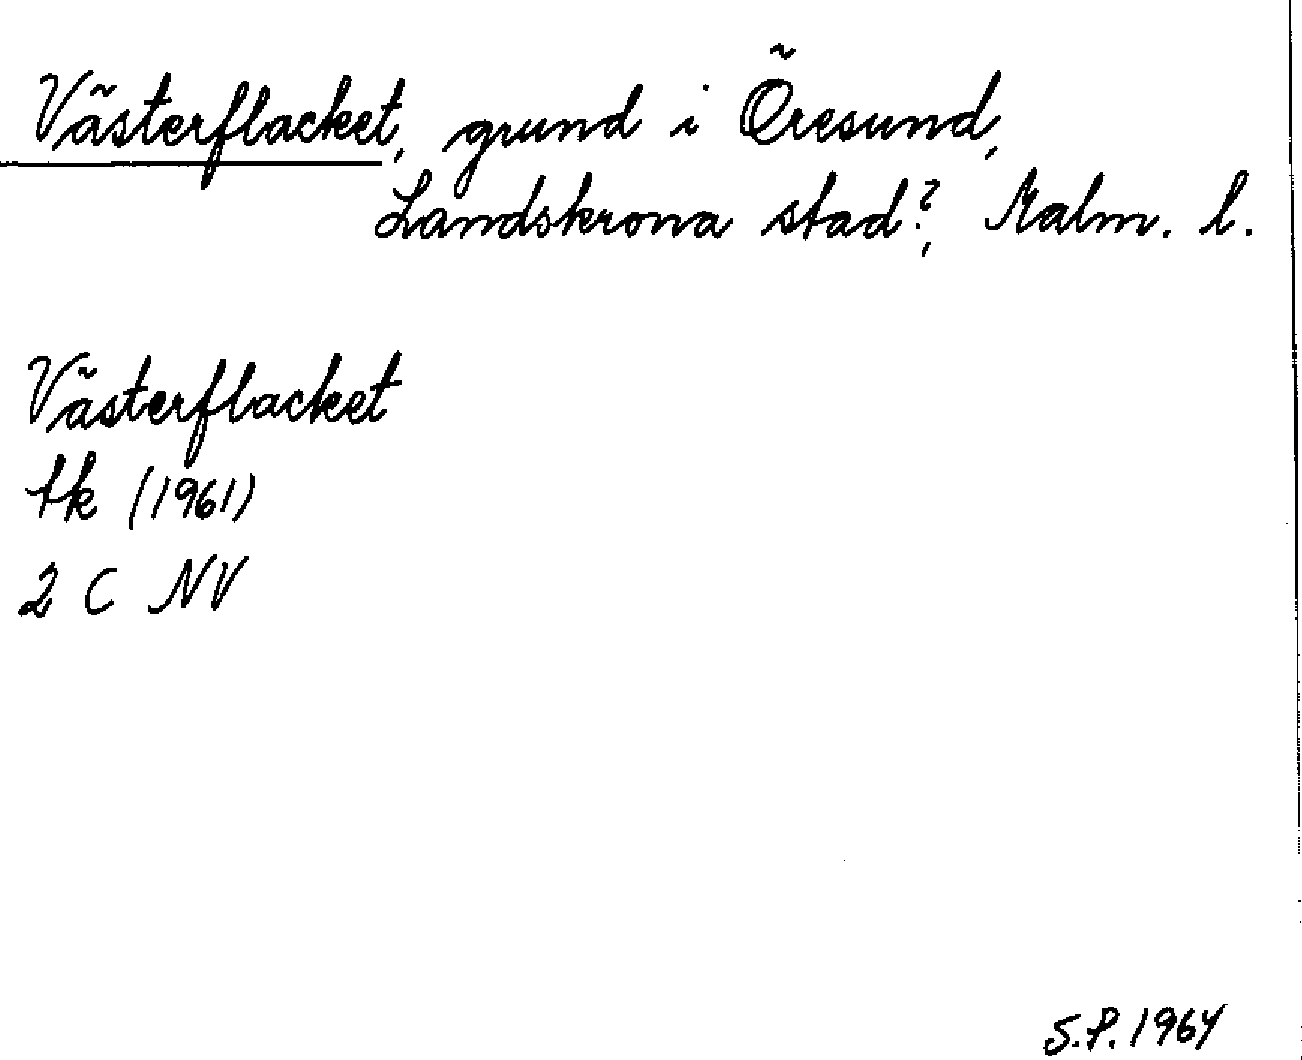 Västerflacket, grund i Öresund,
Landskrona stad?, Malm. l.
Västerflacket
tk (1961)
2 C NV
S.P. 1964